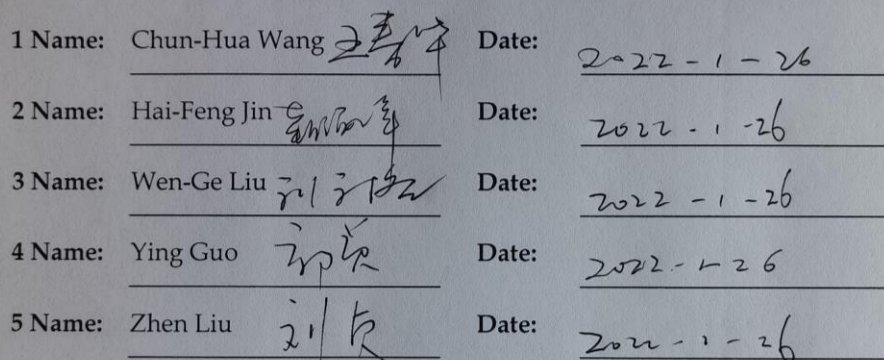 1 Name: Chun-Hua Wang 王春华 Date: 2022-1-26
2 Name: Hai-Feng Jin Date: 2022-1-26
3 Name: Wen-Ge Liu Date: 2022-1-26
4 Name: Ying Guo Date: 2022-1-26
5 Name: Zhen Liu Date: 2022-1-26